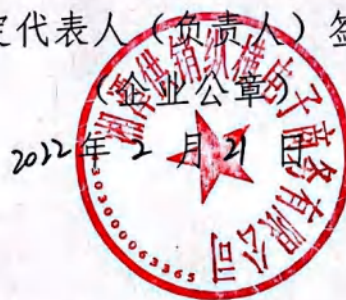 定代表人（负责人）签
（企业公章）
2022年2月21日
湘潭供销纵横电子商务有限公司
4303000063365